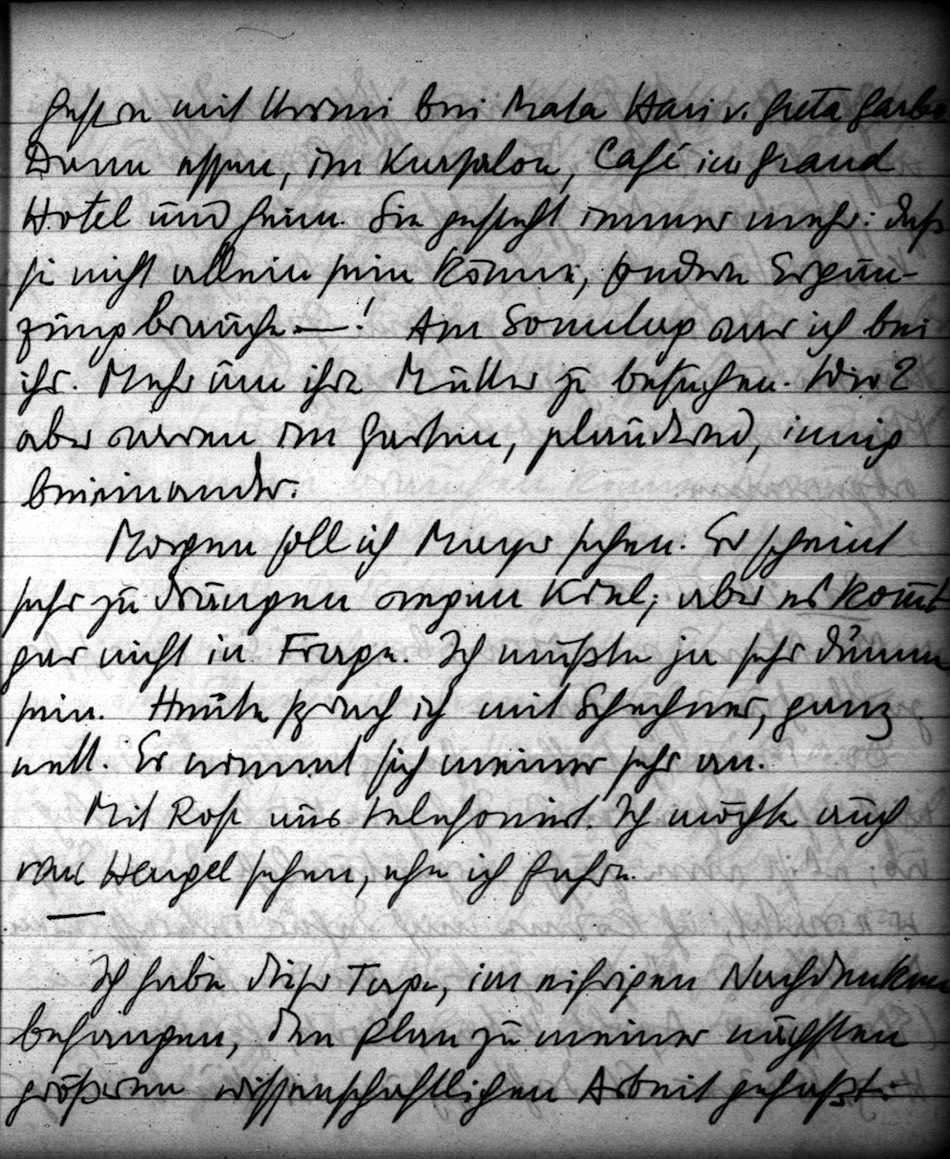 Gestern mit Urmi bei Mata Hari v. Greta Garbo
Dann essen, im Kursalon, Café im Grand
Hotel und heim. Sie gesteht immer mehr: daß
sie nicht allein sein könne, sondern Ergän-
zung brauche —! Am Sonntag war ich bei
ihr. Mehr um ihre Mutter zu besuchen. Wir 2
aber waren im Garten, plaudernd, innig
beieinander.
Morgen soll ich Mayer sehen. Er scheint
sehr zu drängen wegen Kiel; aber es kom̄t
gar nicht in Frage. Ich müßte ja sehr dumm
sein. Heute sprach ich mit Schechner, ganz
nett. Er nimmt sich meiner sehr an.
Mit Rose uns telefoniert. Ich möchte auch
van Hengel sehen, ehe ich fahre.
—
Ich habe diese Tage, im eifrigen Nachdenken
befangen, den Plan zu meiner nächsten
größeren wissenschaftlichen Arbeit gefaßt: